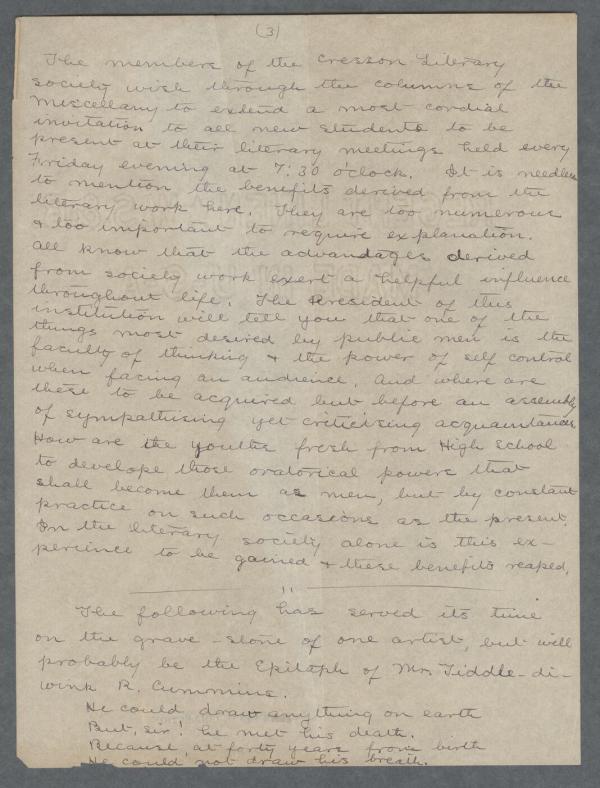 (3)
The members of the Cresson Literary
society wish through the columns of the
Miscellany to extend a most cordial
invitation to all new students to be
present at their literary meetings held every
Friday evening at 7:30 o'clock. It is needless
to mention the benefits derived from the
literary work here. They are too numerous
& too important to require explanation.
All know that the advantages derived
from society work exert a helpful influence
throughout life. The President of this
institution will tell you that one of the
things most desired by public men is the
faculty of thinking & the power of self control
when facing an audience. And where are
these to be acquired but before an assembly
of sympathising yet criticising acquaintances
How are the youths fresh from High School
to develope those oratorical powers that
shall become them as men, but by constant
practice on such occasions as the present.
In the literary society alone is this ex-
perience to be gained & these benefits reaped.
"
The following has served its time
on the grave-stone of one artist, but will
probably be the Epitaph of Mr. Tiddle-di-
wink R. Cummins.
He could draw anything on earth
But, sir! he met his death.
Because, at forty years from birth
He could not draw his breath.